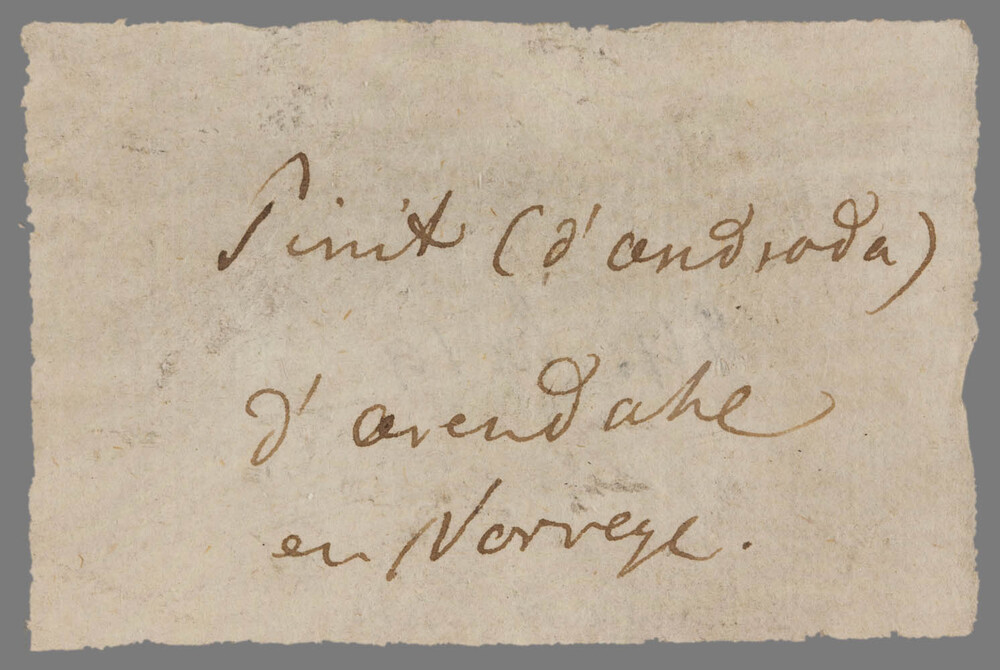 Pinit (d'androda)
d'arendahl
en Norvege.